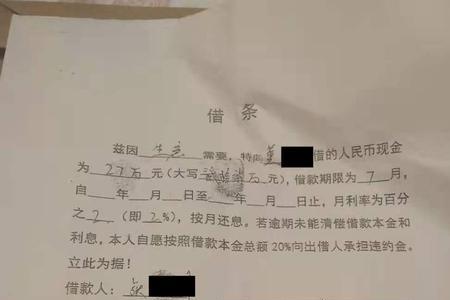 借 条
兹因 生意 需要，特向 借的人民币现金
为 27万 元（大写 万 元），借款期限为 7 月，
自 年 月 日至 年 月 日止，月利率为百分
之 2 （即 2%），按月还息。若逾期未能清偿借款本金和
利息，本人自愿按照借款本金总额20%向出借人承担违约金。
立此为据！
借款人：